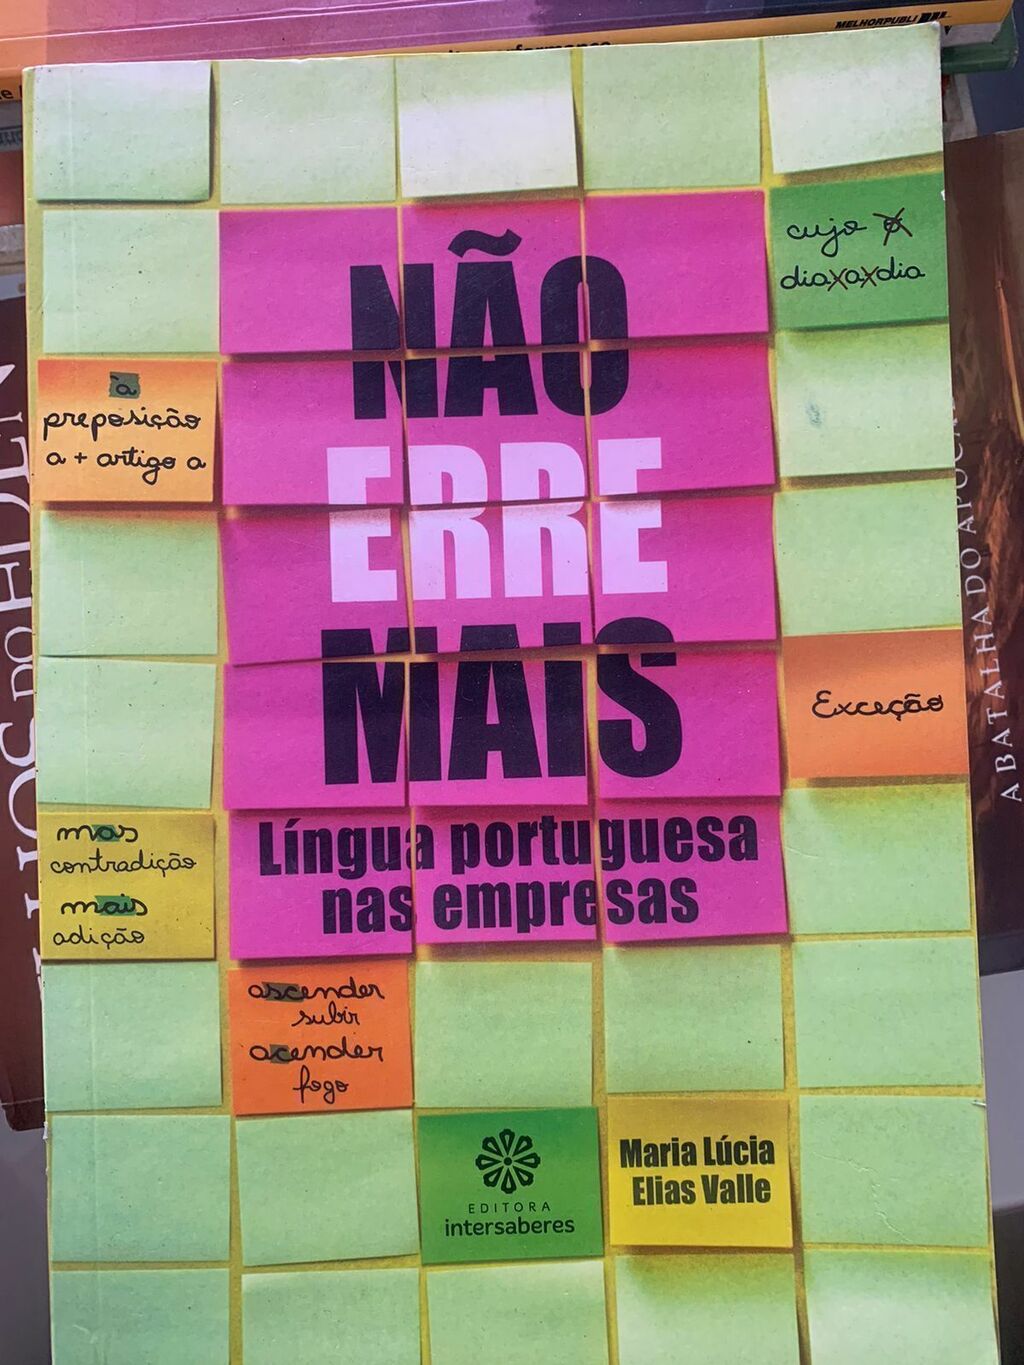 MELHORPUBLI
cujo o
dia a dia
NÃO
à
preposição
a + artigo a
ERRE
MAIS
Exceção
mas
contradição
mais
adição
Língua portuguesa
nas empresas
ascender
subir
acender
fogo
EDITORA
intersaberes
Maria Lúcia
Elias Valle
DO ÉDEN
A BATALHA DO